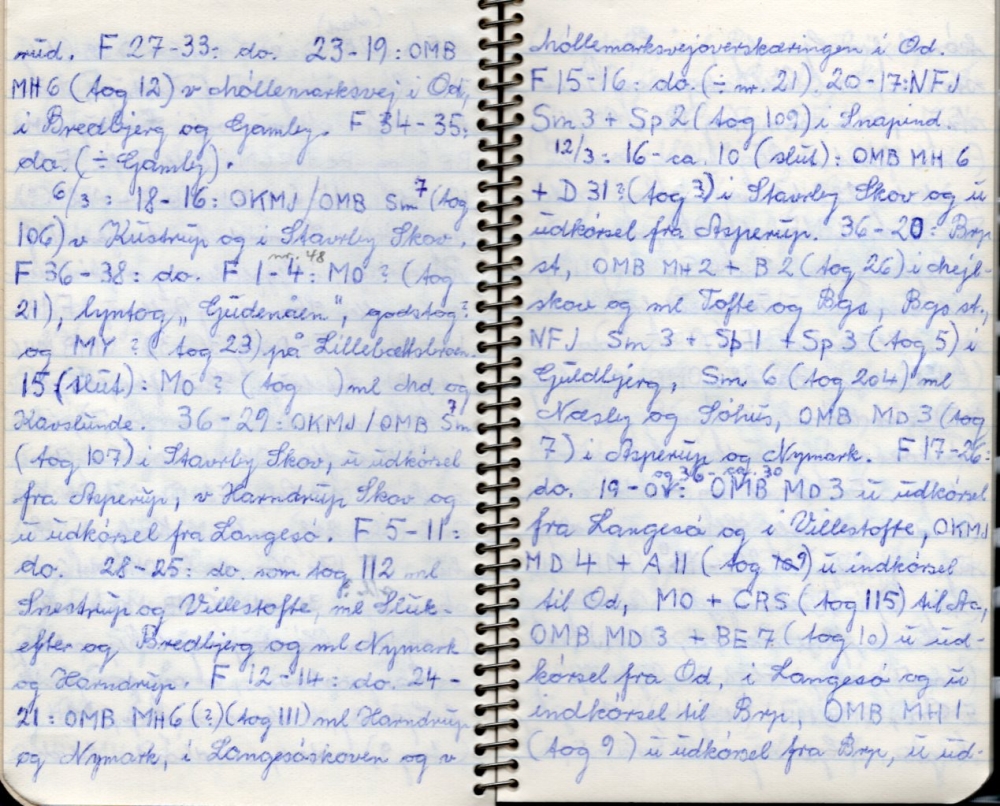 rud. F 27-33: do. 23-19: OMB
MH 6 (tog 12) v Møllemarksvej i Od,
i Bredbjerg og Gamby. F 34-35:
do. (÷ Gamby).
6/3: 18-16: OKMJ/OMB Sm 7 (tog
106) v Kustrup og i Stavrby Skov.
F 36-38: do. F nr. 48 1-4: MO ? (tog
21), lyntog „Gudenåen", godstog?
og MY ? (tog 23) på Lillebæltsbroen.
15 (slut): MO ? (tog ) ml Md og
Kavslunde. 36-29: OKMJ/OMB Sm 7
(tog 107) i Stavrby Skov, u udkørsel
fra Asperup, v Harndrup Skov og
u udkørsel fra Langesø. F 5-11:
do. 28-25: do. som tog 112 ml
Snestrup og Villestofte, ml Sluk-
efter og Bredbjerg og ml Nymark
og Harndrup. F 12-14: do. 24-
21: OMB MH 6 (?) (tog 111) ml Harndrup
og Nymark, i Langesøskoven og v
Møllemarksvejoverskæringen i Od.
F 15-16: do. (÷ nr. 21). 20-17: NFJ
Sm 3 + Sp 2 (tog 109) i Snapind.
12/3: 16-ca. 10 (slut): OMB MH 6
+ D 31? (tog 3) i Stavrby Skov og u
udkørsel fra Asperup. 36-20: Brp
st, OMB MH 2 + B 2 (tog 26) i Mejl-
skov og ml Tofte og Bgs, Bgs st,
NFJ Sm 3 + Sp 1 + Sp 3 (tog 5) i
Guldbjerg, Sm 6 (tog 204) ml
Næsby og Søhus, OMB MD 3 (tog
7) i Asperup og Nymark. F 17-26:
do. 19-0 og 36-ca. 30: OMB MD 3 u udkørsel
fra Langesø og i Villestofte, OKMJ
MD 4 + A 11 (tog 109) u indkørsel
til Od, MO + CRS (tog 115) til Ac,
OMB MD 3 + BE 7 (tog 10) u ud-
kørsel fra Od, i Langesø og u
indkørsel til Brp, OMB MH 1
(tog 9) u udkørsel fra Brp, u ud-